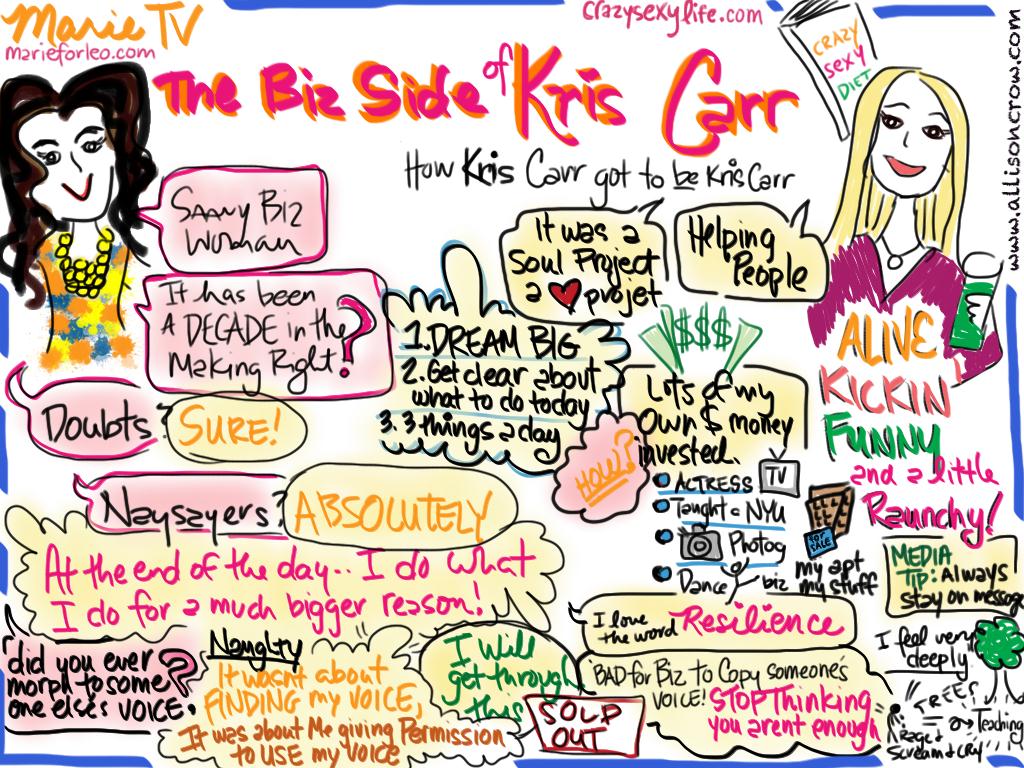 Marie TV
marieforleo.com
crazysexylife.com
CRAZY
Sexy
DIET
www.allisoncrow.com
The Biz Side of Kris Carr
How Kris Carr got to be Kris Carr
SAAVY BIZ
Woman
It has been
A DECADE in the
Making Right?
It was a
Soul Project
a projet
Helping
People
1. DREAM BIG
2. Get clear about
what to do today
3. 3 things a day
$$$
Lots of my
own $ money
invested.
HOW?
Doubts
SURE!
ACTRESS
TV
Taught @ NYU
Photog
Dance biz
FOR
SALE
my apt
my stuff
ALIVE
KICKIN'
FUNNY
and a little
Raunchy!
MEDIA
TIP: Always
stay on message
Naysayers?
ABSOLUTELY
At the end of the day.. I do what
I do for a much bigger reason!
I love
the word Resilience
I feel very
deeply
did you ever
morph to some
one elses VOICE?
Naughty
It wasnt about
FINDING my VOICE,
It was about Me giving Permission
to USE my VOICE
I Will
get through
this
SOLD
OUT
BAD for Biz to Copy someone's
VOICE! STOP Thinking
you arent enough
TREES
Teaching
Rage &
Scream & Cry